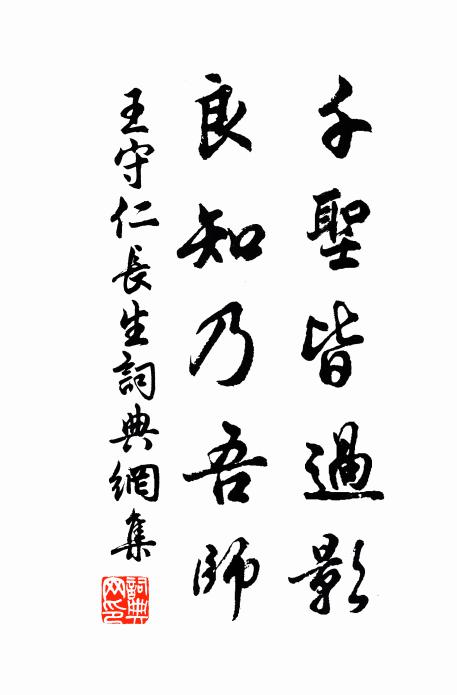 千聖皆過影
良知乃吾師
王守仁長生詞典網集
詞典網印